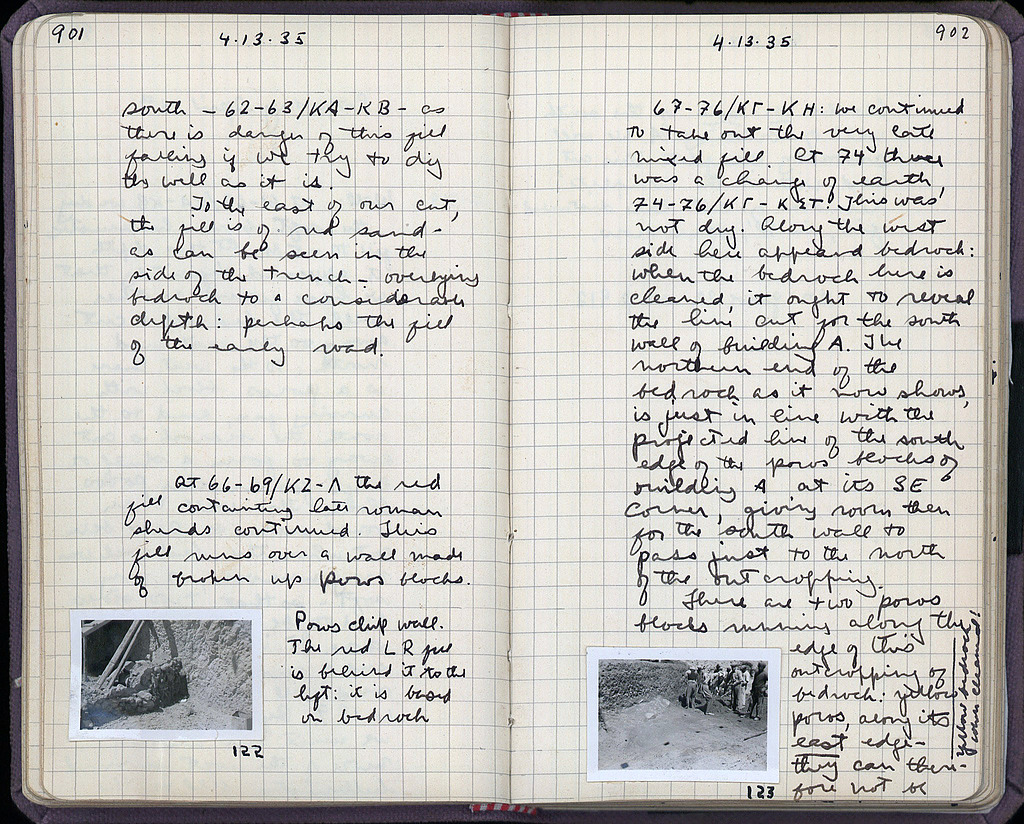 901
4·13·35
south – 62-63/ΚΑ-ΚΒ – as
there is danger of this fill
falling if we try to dig
the well as it is.
To the east of our cut,
the fill is of red sand –
as can be seen in the
side of the trench – overlying
bedrock to a considerable
depth: perhaps the fill
of the early road.
At 66-69/ΚΖ-Λ the red
fill containing late roman
sherds continued. This
fill runs over a wall made
of broken up poros blocks.
Poros chip wall.
The red LR fill
is behind it to the
left: it is based
on bedrock
122
902
4·13·35
67-76/ΚΓ-ΚΗ: we continued
to take out the very late
mixed fill. At 74 there
was a change of earth,
74-76/ΚΓ-ΚΣΤ. This was
not dug. Along the west
side here appeared bedrock:
when the bedrock here is
cleaned, it ought to reveal
the line cut for the south
wall of building A. The
northern end of the
bedrock as it now shows,
is just in line with the
projected line of the south
edge of the poros blocks of
building A at its SE
corner, giving room then
for the south wall to
pass just to the north
of the outcropping.
There are two poros
blocks running along the
edge of this
outcropping of
bedrock: yellow
poros, along its
east edge –
they can there-
fore not be
yellow bedrock
when cleaned!
123